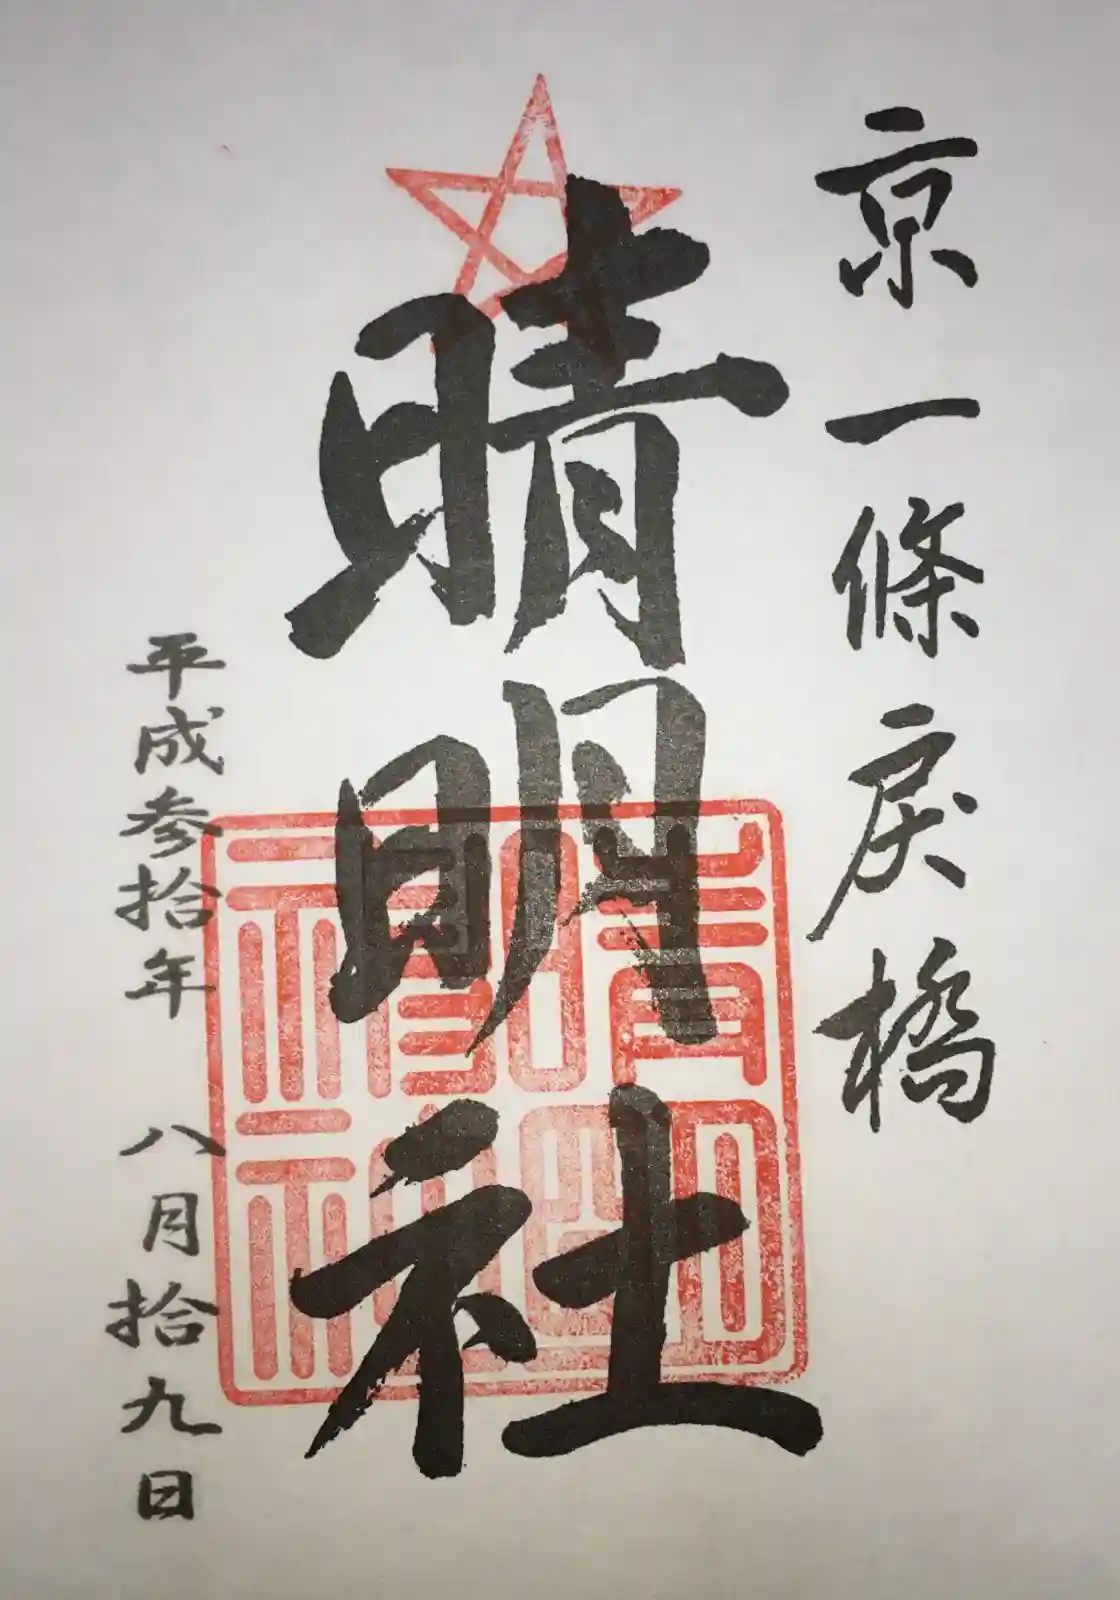 京一條戻橋
晴明社
平成参拾年 八月拾九日
晴明神社